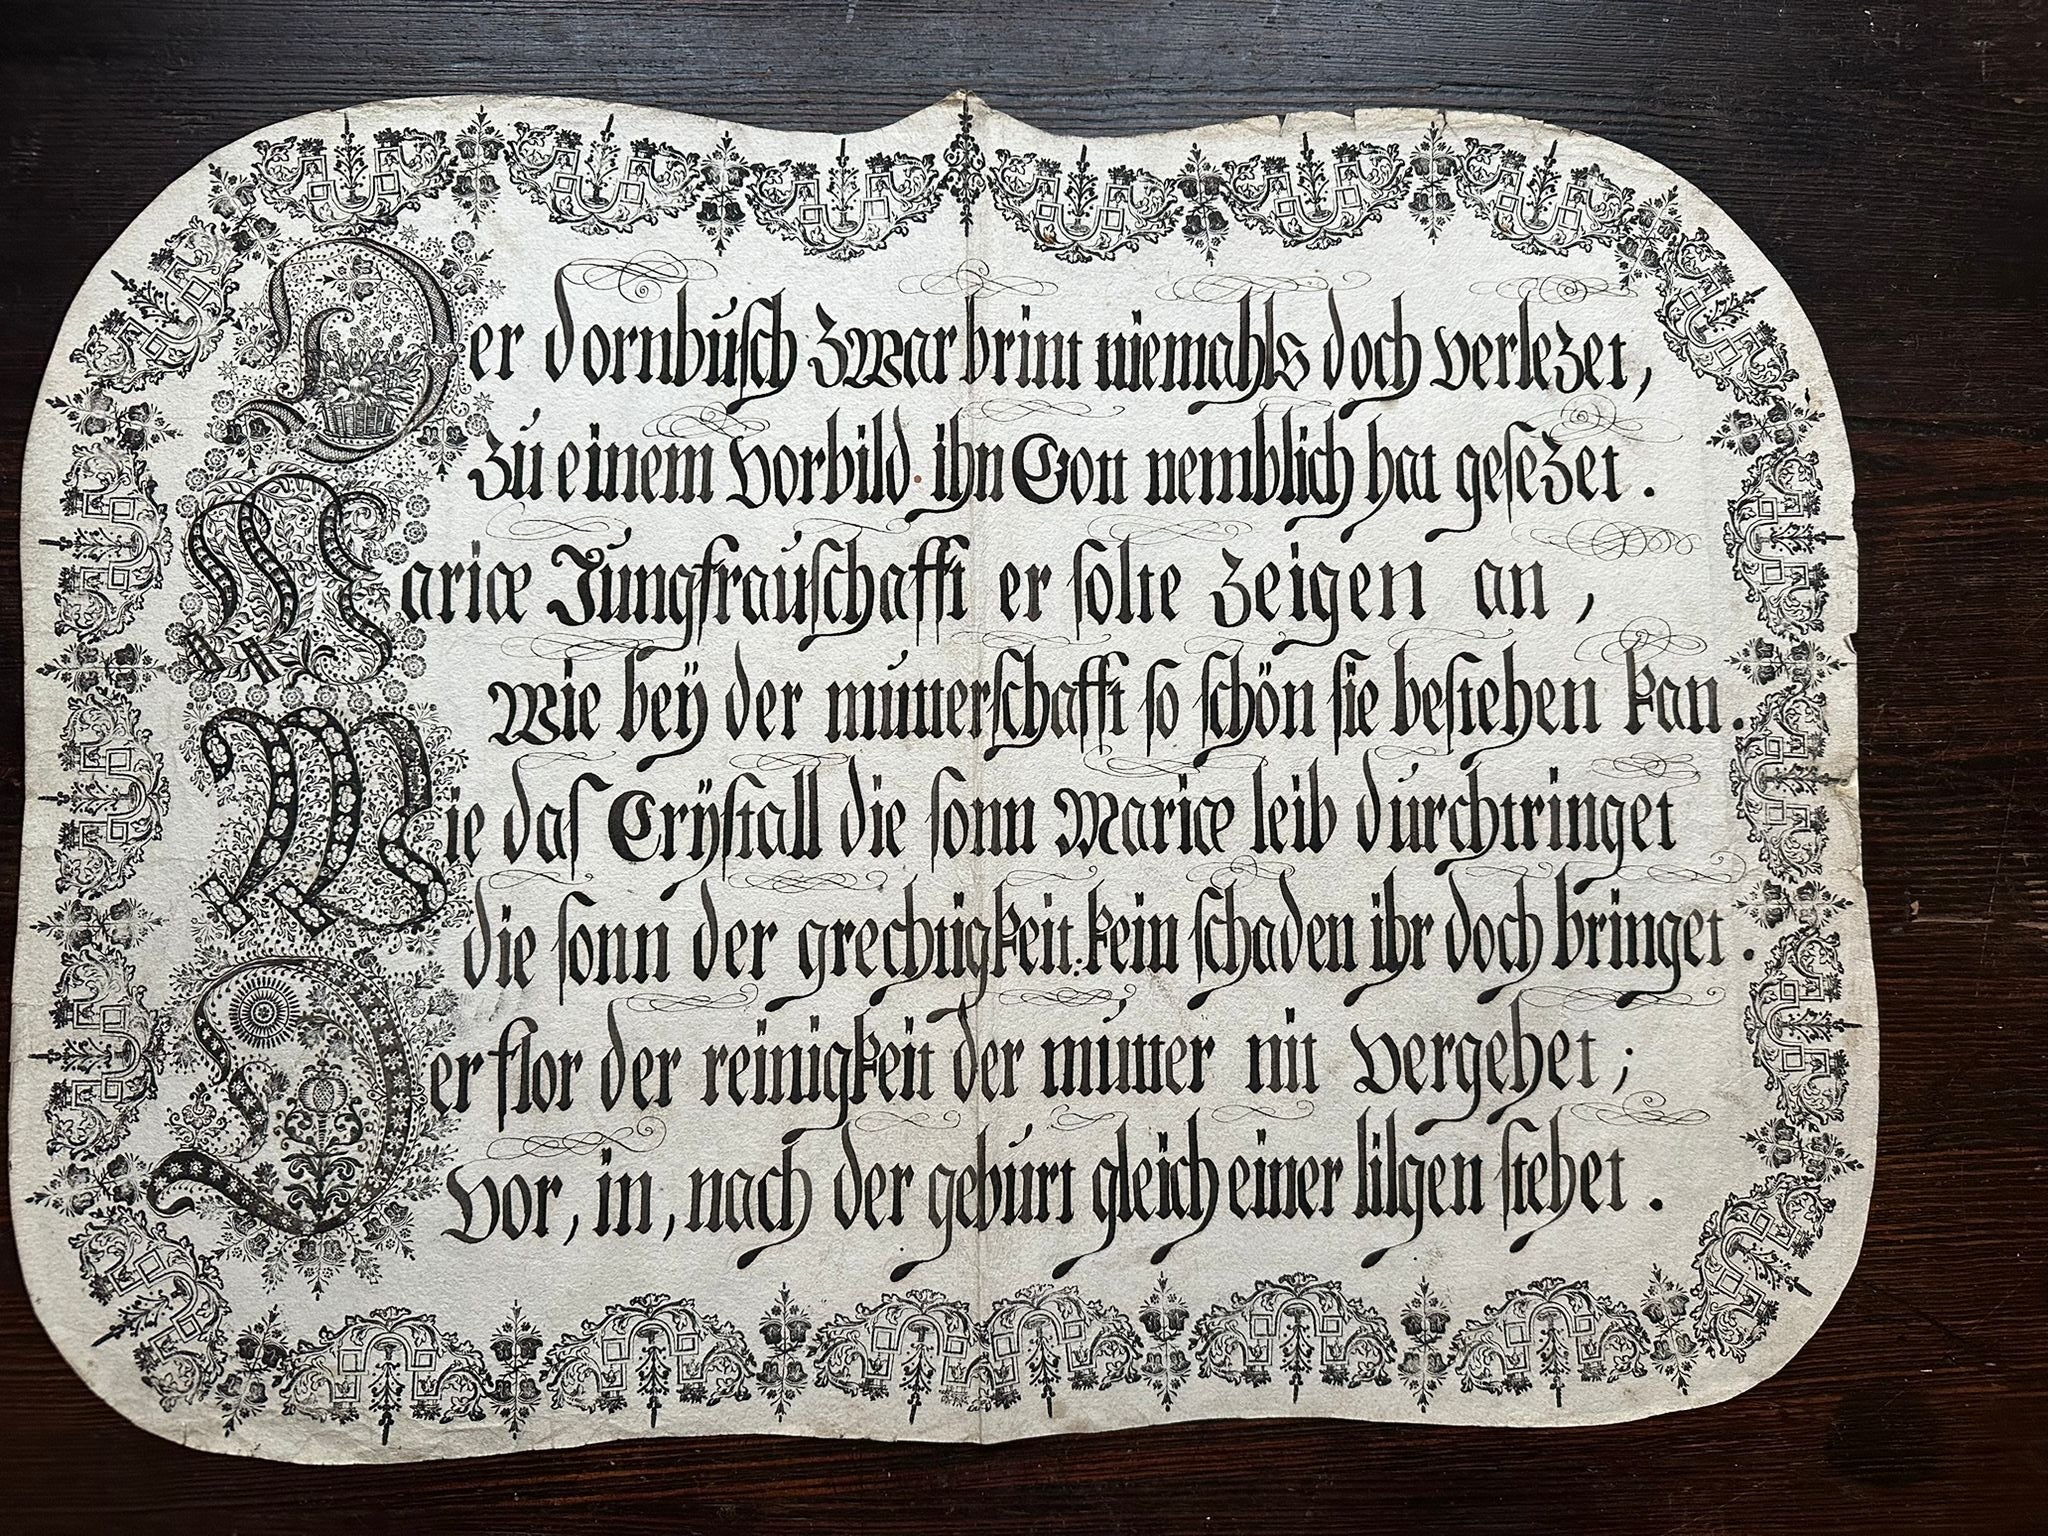 Der dornbusch zwar brint niemahls doch verlezet,
zu einem vorbild ihn Gott nemblich hat gesezet.
Mariæ Jungfrauschafft er solte zeigen an,
Wie beÿ der mutterschafft so schön sie bestehen kan.
Wie das Crÿstall die sonn Mariæ leib durchtringet
die sonn der grechtigkeit kein schaden ihr doch bringet.
Der flor der reinigkeit der mutter nit vergehet;
vor, in, nach der geburt gleich einer lilgen stehet.